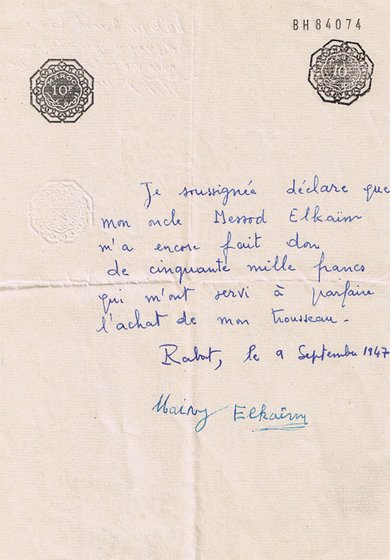 BH84074
MAROC
10F
10F
Je soussignéa déclare que
mon oncle Messod Elkaïm
m'a encore fait don
de cinquante mille francs
qui m'ont servi à parfaire
l'achat de mon trousseau.
Rabat, le 9 Septembre 1947
Elkaïm